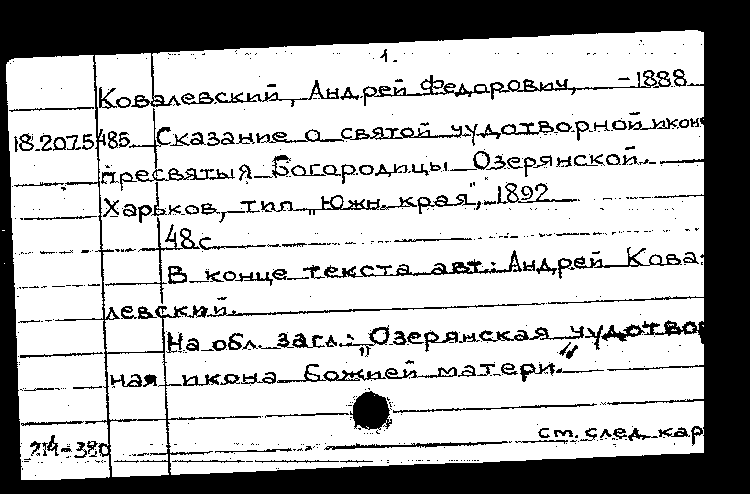 1.
Ковалевский, Андрей Федорович, -1888.
18.207.5485 Сказание о святой чудотворной икон
пресвятыя Богородицы Озерянской.
Харьков, тип „Южн. края", 1892
48с
В конце текста авт.: Андрей Кова-
левский.
На обл. загл.: „Озерянская чудотвор
ная икона Божией матери."
214-380
ст. след. кар